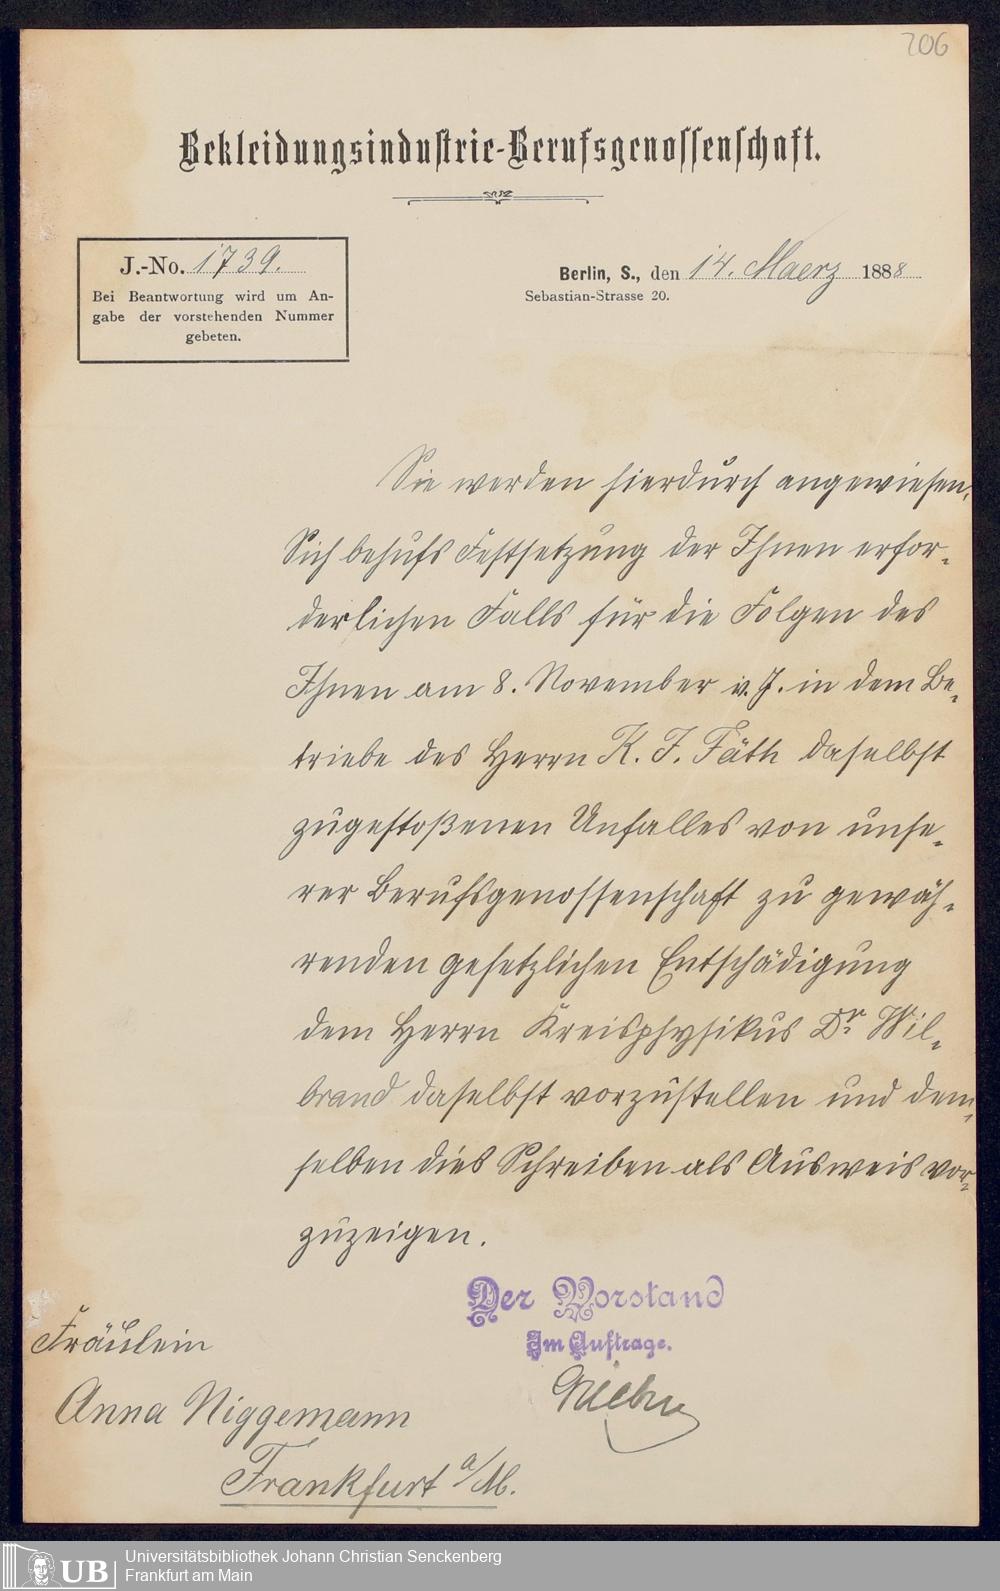 206
Bekleidungsindustrie-Berufsgenossenschaft.
J.-No. 1739.
Bei Beantwortung wird um An-
gabe der vorstehenden Nummer
gebeten.
Berlin, S., den 14. Maerz 1888
Sebastian-Strasse 20.
Sie werden hierdurch angewiesen,
Sich behufs Festsetzung der Ihnen erfor-
derlichen Falls für die Folgen des
Ihnen am 8. November v. J. in dem Be-
triebe des Herrn K. J. Fäth daselbst
zugestoßenen Unfalles von unse-
rer Berufsgenossenschaft zu gewäh-
renden gesetzlichen Entschädigung
dem Herrn Kreisphysikus Dr. Wil-
brand daselbst vorzustellen und dem-
selben dies Schreiben als Ausweis vor-
zuzeigen.
Der Vorstand
Im Auftrage.
Fräulein
Anna Niggemann
Frankfurt a/M.
UB Universitätsbibliothek Johann Christian Senckenberg
Frankfurt am Main